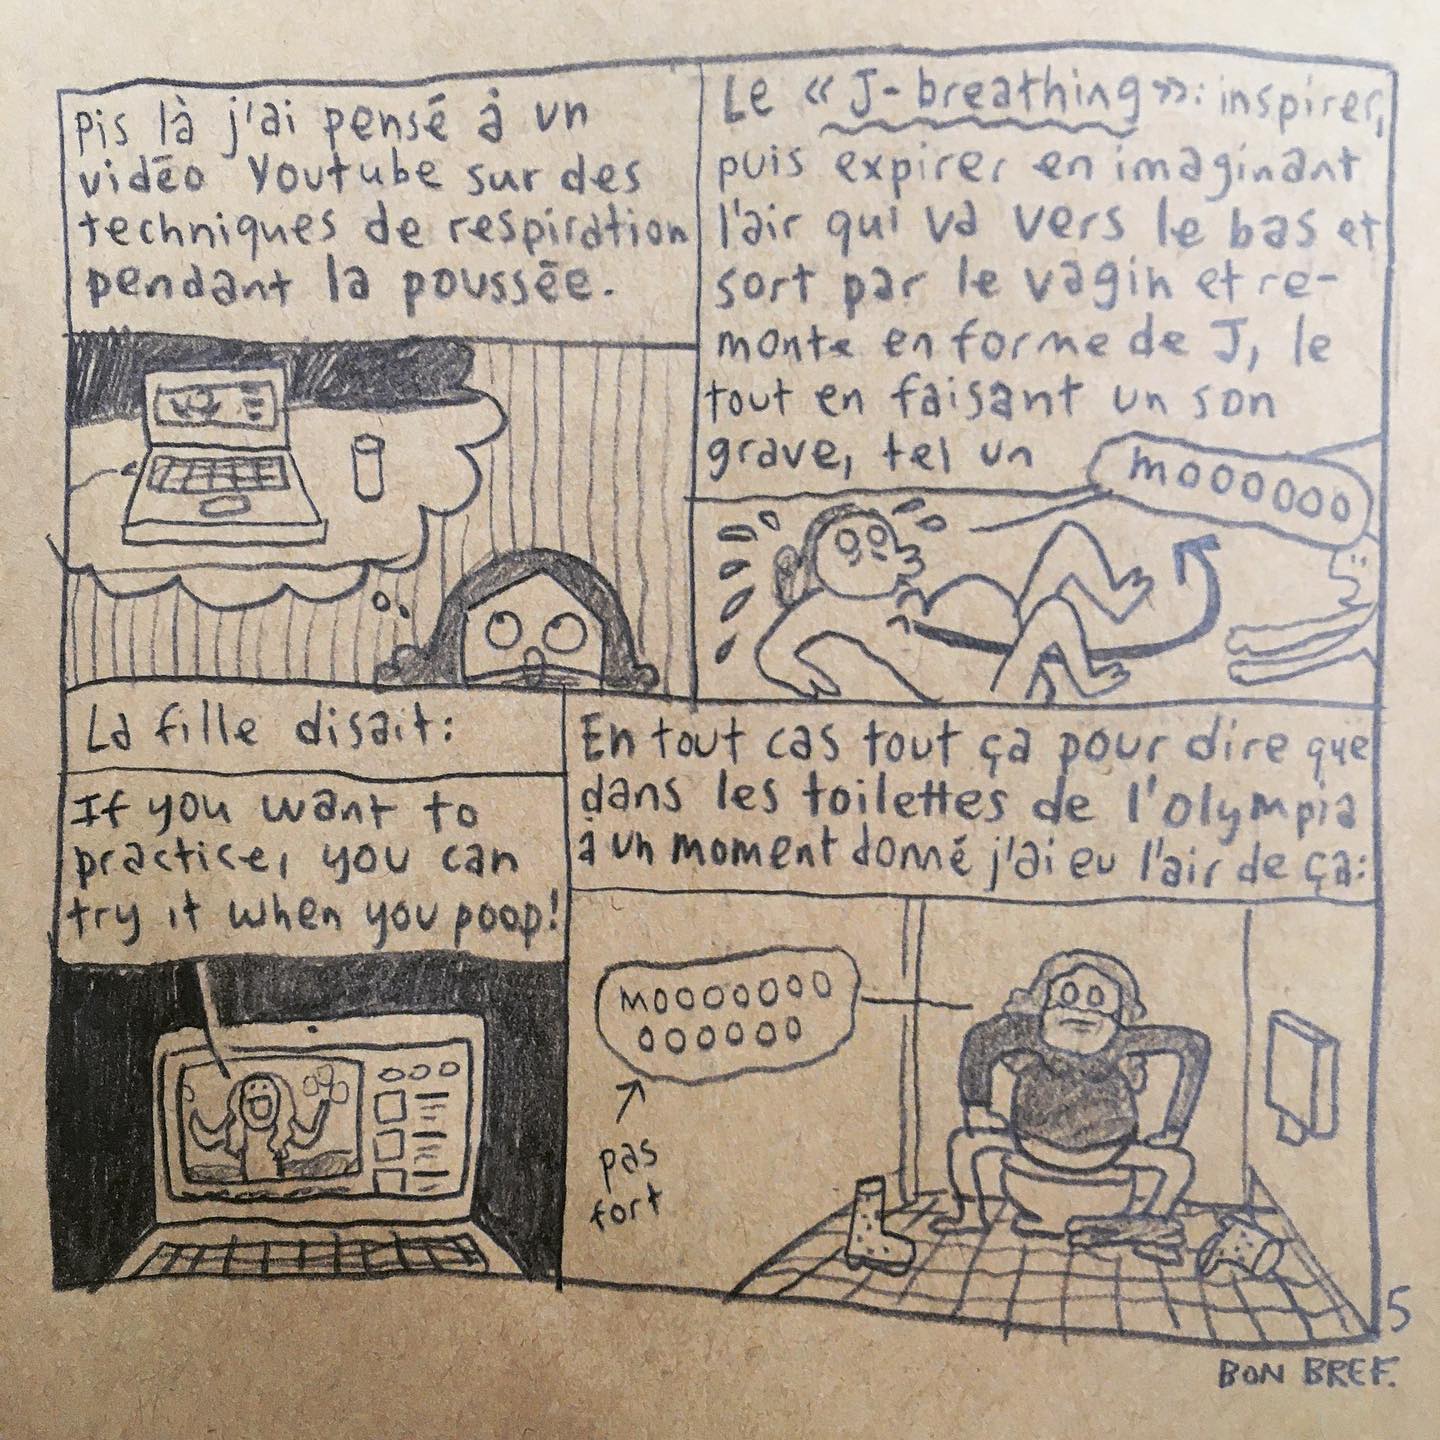 Pis là j'ai pensé à un
vidéo Youtube sur des
techniques de respiration
pendant la poussée.
Le « J-breathing » : inspirer,
puis expirer en imaginant
l'air qui va vers le bas et
sort par le vagin et re-
monte en forme de J, le
tout en faisant un son
grave, tel un
MOOOOOO
La fille disait :
If you want to
practice, you can
try it when you poop!
En tout cas tout ça pour dire que
dans les toilettes de l'Olympia
à un moment donné j'ai eu l'air de ça :
MOOOOOOO
OOOOOO
pas
fort
5
BON BREF.